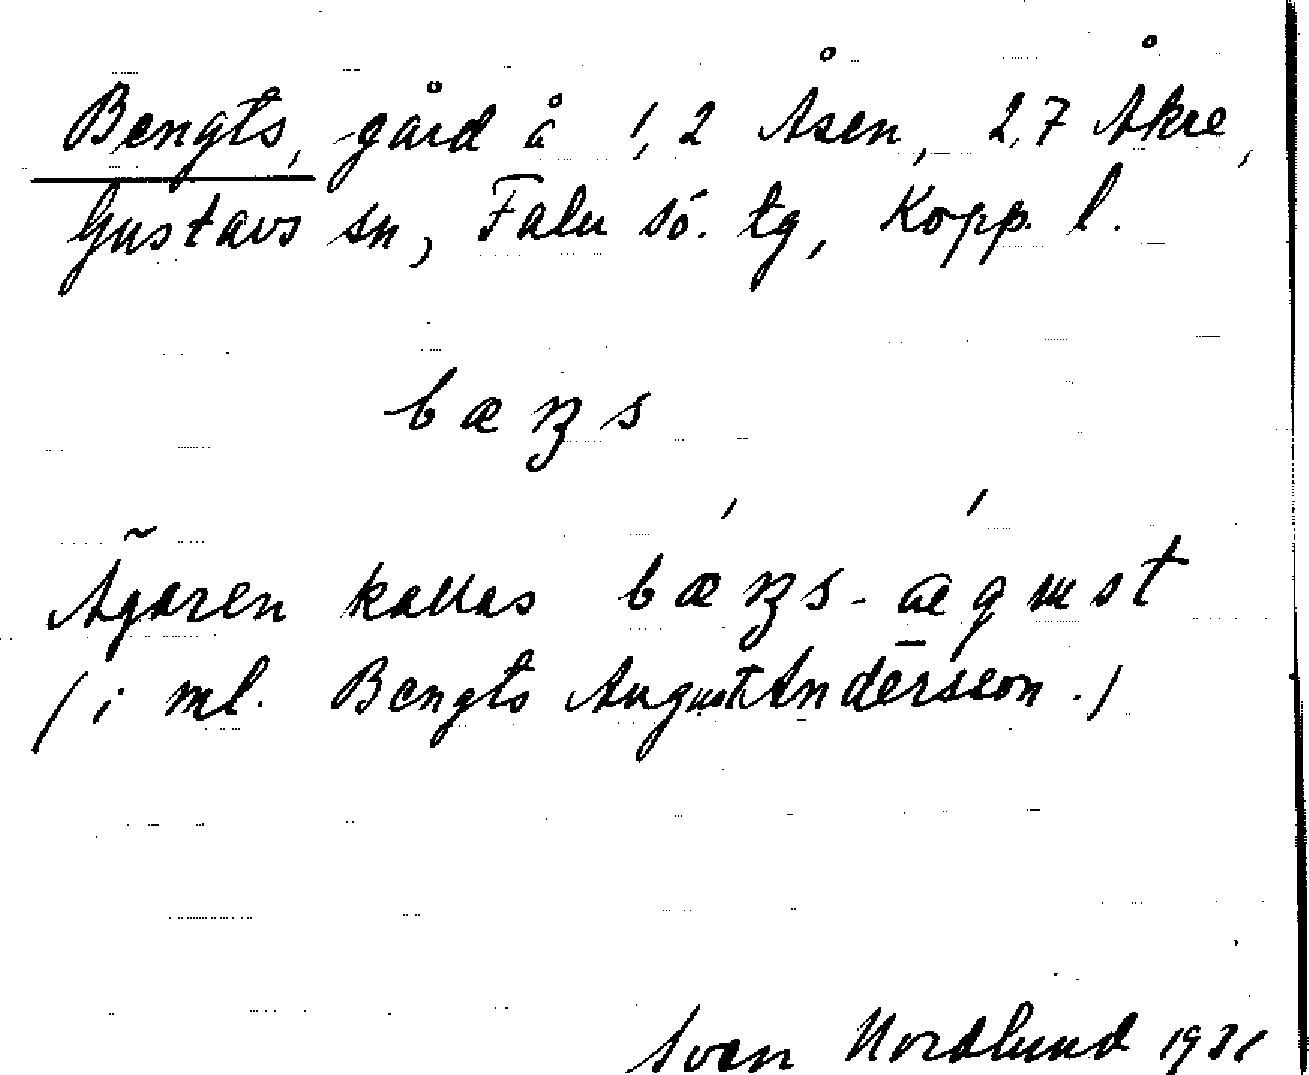 Bengts, gård å 1,2 Åsen, 2,7 Åkre,
Gustavs sn, Falu sö. tg, Kopp. l.
bæŋs
Ägaren kallas bæŋs-águst
(i ml. Bengts August Andersson.)
Sven Nordlund 1931